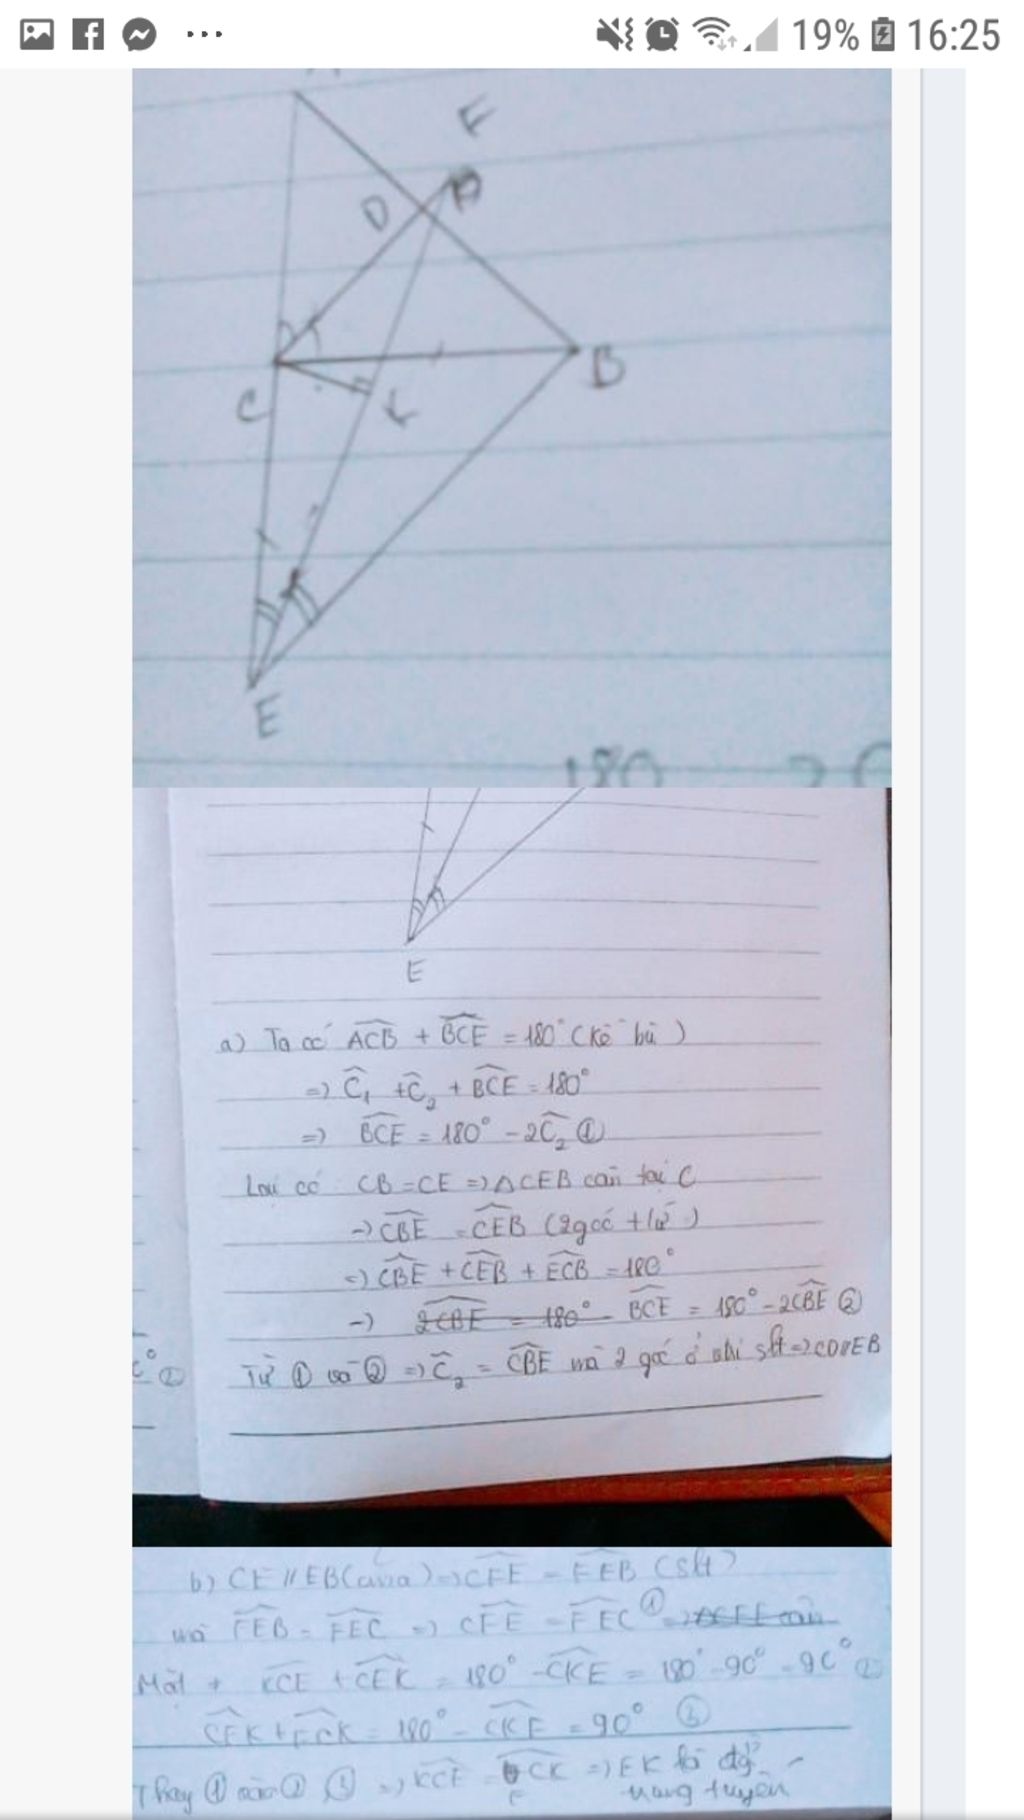 19% 16:25
F
D
B
C
K
E
180
E
a) Ta có ACB + BCE = 180° (kề bù)
=) C₁ + C₂ + BCE = 180°
=) BCE = 180° - 2C₂ ①
Lại có CB = CE => ΔCEB cân tại C
-) CBE = CEB (2 góc t/ư)
=) CBE + CEB + ECB = 180°
-) 2CBE = 180° - BCE = 180° - 2CBE ②
Từ ① và ② =) C₂ = CBE mà 2 góc ở vị trí slt => CD // EB
②
b) CF // EB (câu a) => CFE = FEB (slt)
mà FEB = FEC =) CFE = FEC ① => ΔCEF cân
Mặt + KCE + CEK = 180° - CKE = 180° - 90° = 90° ②
CFK + FCK = 180° - CKF = 90° ③
Thay ① vào ②, ③ =) KCE = FCK => EK là đg
trung tuyến